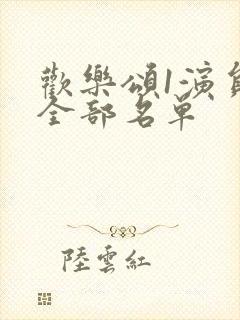 歡樂頌1演員
全部名單
陸雲紅